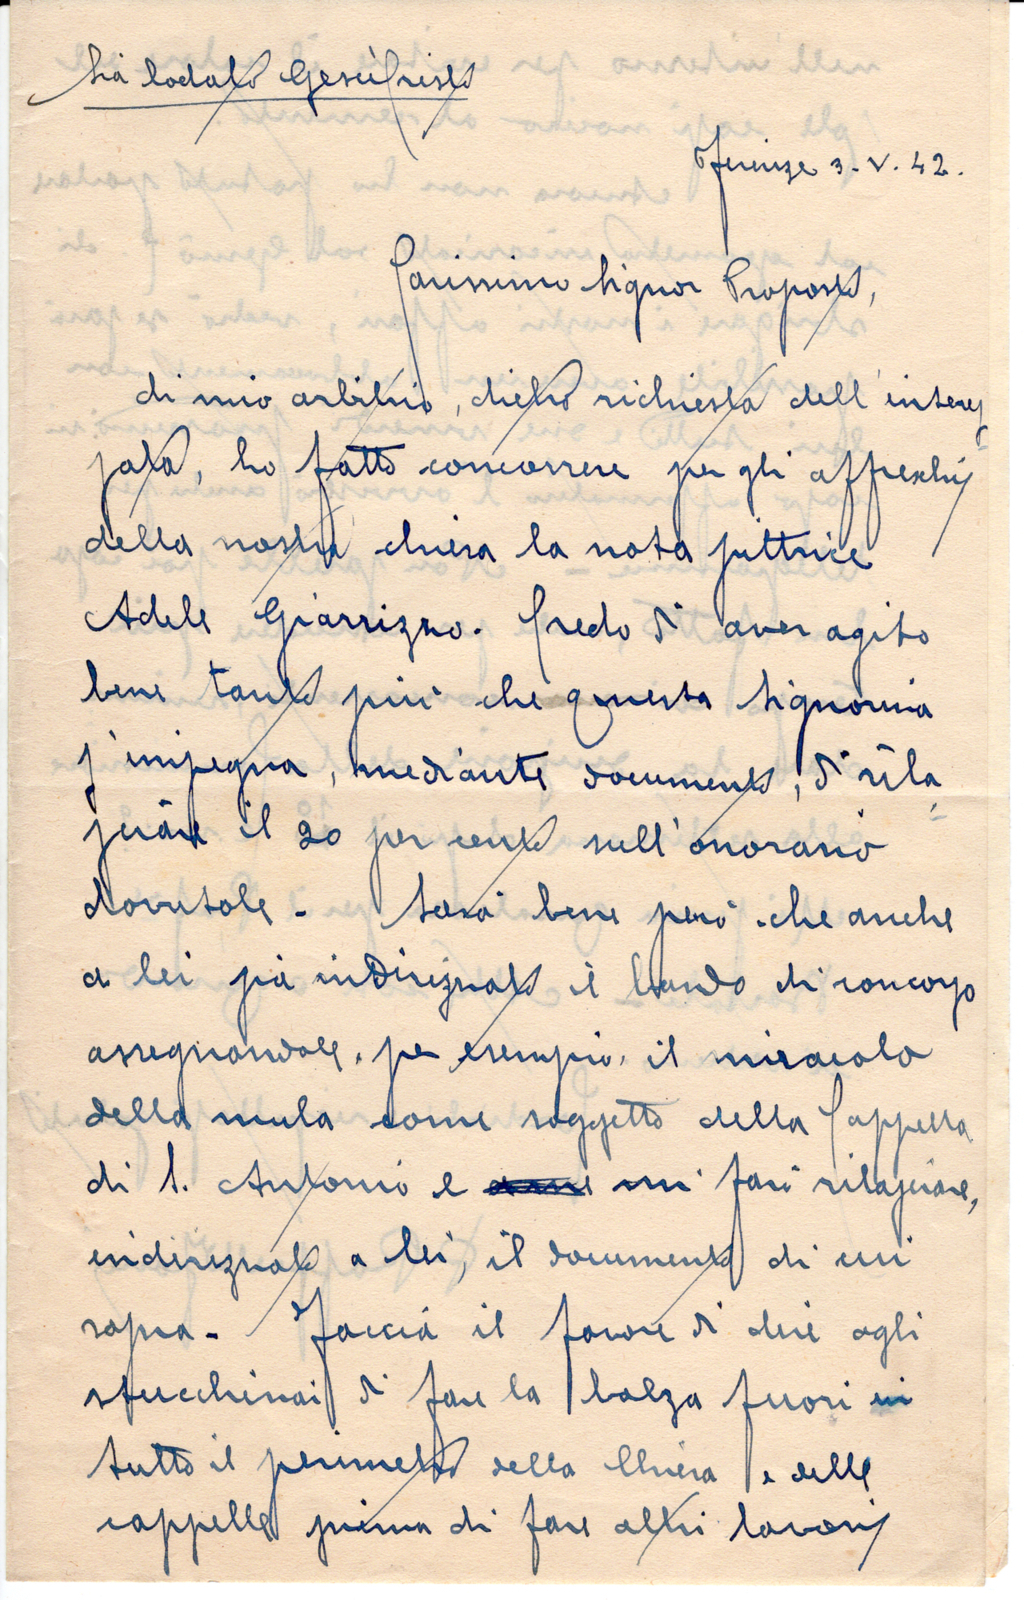 Sia lodato Gesù Cristo
Firenze 3-V-42.
Carissimo Signor Proposto,
di mio arbitrio, dietro richiesta dell'interes
sata, ho fatto concorrere per gli affreschi
della nostra chiesa la nota pittrice
Adele Giarrizzo. Credo di aver agito
bene tanto più che questa Signorina
s'impegna, mediante documento, di rila
sciare il 20 per cento sull'onorario
dovutole - Sarà bene però che anche
a lei sia indirizzato il bando di concorso
assegnandole, per esempio, il miracolo
della mula come soggetto della Cappella
di S. Antonio e mi farà rilasciare,
indirizzato a lei, il documento di cui
sopra - Faccia il favore di dire agli
stucchinai di fare la balza fuori in
tutto il perimetro della Chiesa e delle
cappelle prima di fare altri lavori